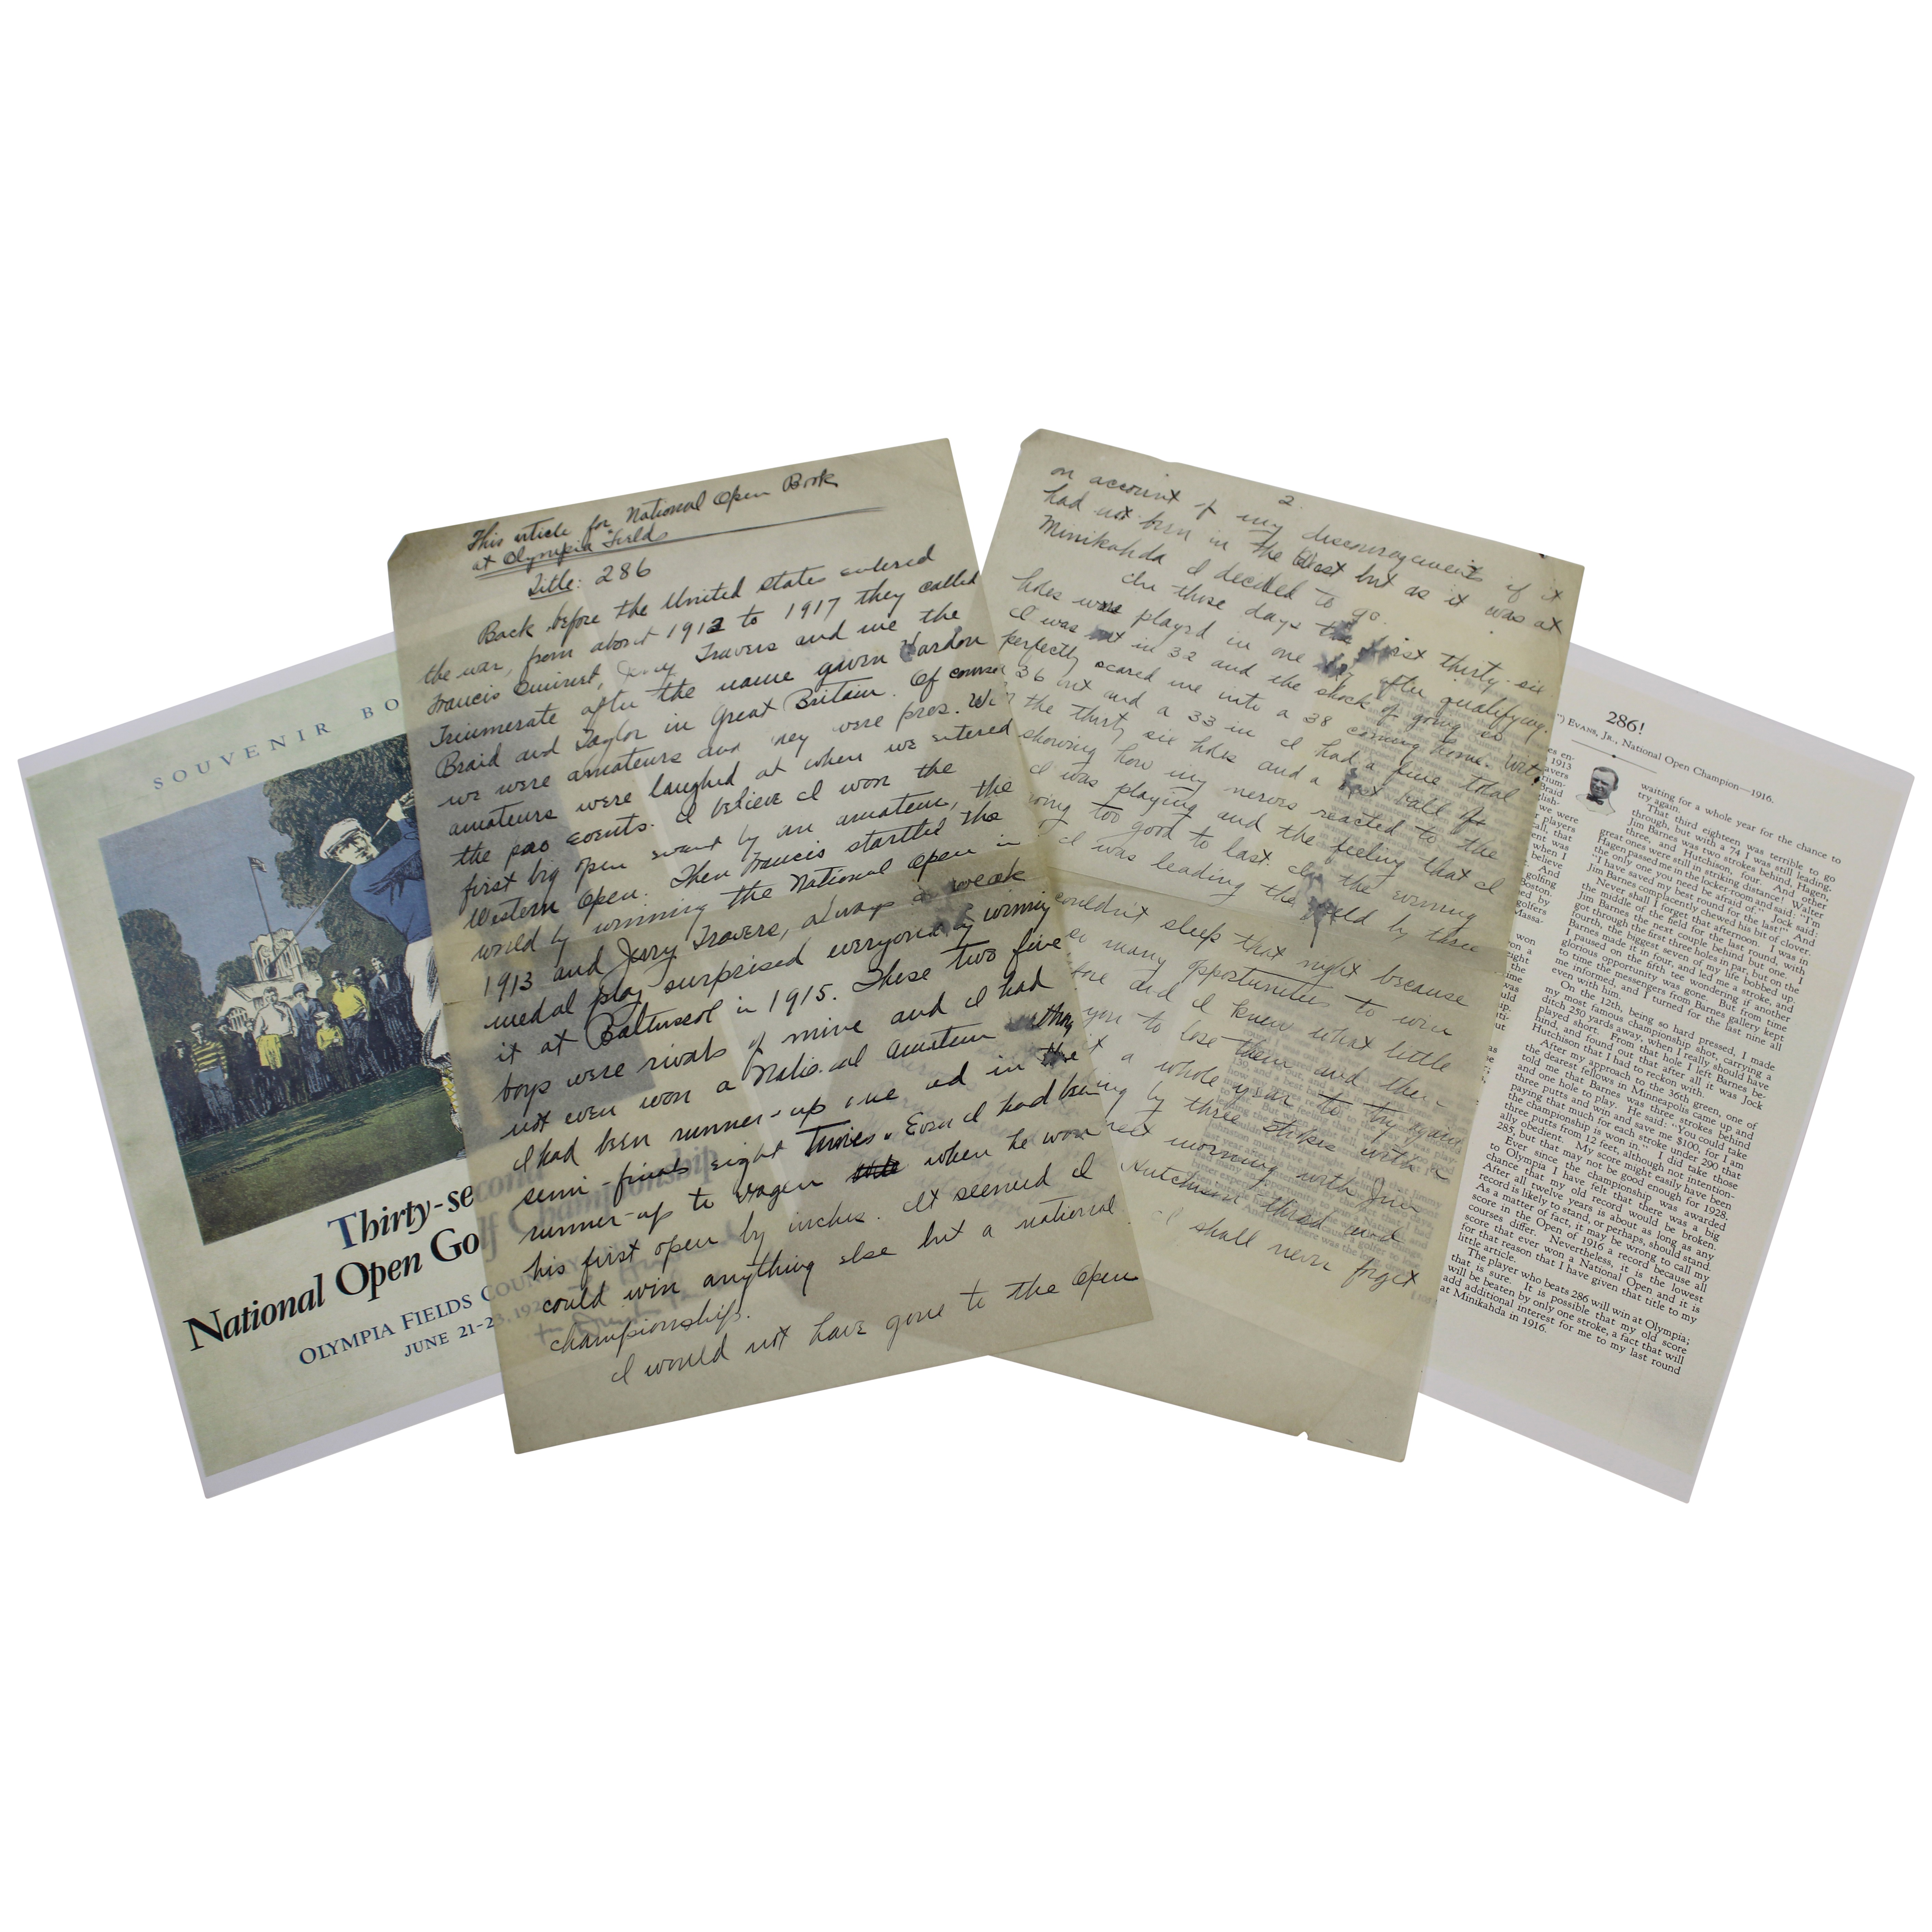 SOUVENIR BO
Thirty-se
National Open Go
OLYMPIA FIELDS COUNTRY
JUNE 21-23, 192
This article for National Open Book
at Olympia Fields
Title: 286
Back before the United States entered
the war, from about 1912 to 1917 they called
Francis Ouimet, Jerry Travers and me the
Triumerate after the name given Vardon
Braid and Taylor in Great Britain. Of course
we were amateurs and they were pros. We
amateurs were laughed at when we entered
the pro events. I believe I won the
first big open event by an amateur, the
Western Open. Then Francis startled the
world by winning the National Open in
1913 and Jerry Travers, always a weak
medal play surprised everyone by winning
it at Baltusrol in 1915. These two fine
boys were rivals of mine and I had
not even won a National Amateur although
I had been runner-up once and in the
semi-finals eight times. Even I had been
runner-up to Hagen when he won
his first open by inches. It seemed I
could win anything else but a national
championship.
I would not have gone to the Open
2.
on account of my discouragement if it
had not been in the West but as it was at
Minikahda I decided to go.
In those days the first thirty-six
holes were played in one day after qualifying.
I was out in 32 and the shock of going so
perfectly scared me into a 38 coming home. With
36 out and a 33 in I had a fine total
the thirty six holes and a best ball of
showing how my nerves reacted to the
I was playing and the feeling that I
going too good to last. In the evening
I was leading the field by three
couldn't sleep that night because
so many opportunities to win
fore and I knew what little
you to lose them and then
it a whole year to try again
ing by three strokes with a
next morning with Jim
Hutchison third and
I shall never forget
286!
") EVANS, JR., National Open Champion—1916.
waiting for a whole year for the chance to
try again.
That third eighteen was terrible to go
through, but with a 74 I was still leading.
Jim Barnes was two strokes behind, Hagen,
three, and Hutchison, four. And other
great ones were still in striking distance! Walter
Hagen passed me in the locker room and said: "I'm
the only one you need be afraid of." Jock said:
"I have saved my best round for the last!" And
Jim Barnes complacently chewed his bit of clover.
Never shall I forget that afternoon. I was in
the middle of the field for the last round, with
Jim Barnes in the next couple behind but one. I
got through the first three holes in par, but on the
fourth, the biggest seven of my life bobbed up.
Barnes made it in four, and led me a stroke, and
I paused on the fifth tee wondering if another
glorious opportunity was gone. But from time
to time the messengers from Barnes gallery kept
me informed, and I turned for the last nine all
even with him.
On the 12th, being so hard pressed, I made
my most famous championship shot, carrying a
ditch 250 yards away, when I really should have
played short. From that hole I left Barnes be-
hind, and found out that after all it was Jock
Hutchison that I had to reckon with.
After my approach to the 36th green, one of
the dearest fellows in Minneapolis came up and
told me that Barnes was three strokes behind
and one hole to play. He said: "You could take
three putts and win and save me $100, for I am
paying that much for each stroke under 290 that
the championship is won in." I did take those
three putts from 12 feet, although not intention-
ally obedient. My score might easily have been
285, but that may not be good enough for 1928.
Ever since the championship was awarded
to Olympia I have felt that there was a big
chance that my old record would be broken.
After all twelve years is about as long as any
record is likely to stand, or perhaps, should stand.
As a matter of fact, it may be wrong to call my
score in the Open of 1916 a record because all
courses differ. Nevertheless, it is the lowest
score that ever won a National Open and it is
for that reason that I have given that title to my
little article.
The player who beats 286 will win at Olympia;
that is sure. It is possible that my old score
will be beaten by only one stroke, a fact that will
add additional interest for me to my last round
at Minikahda in 1916.